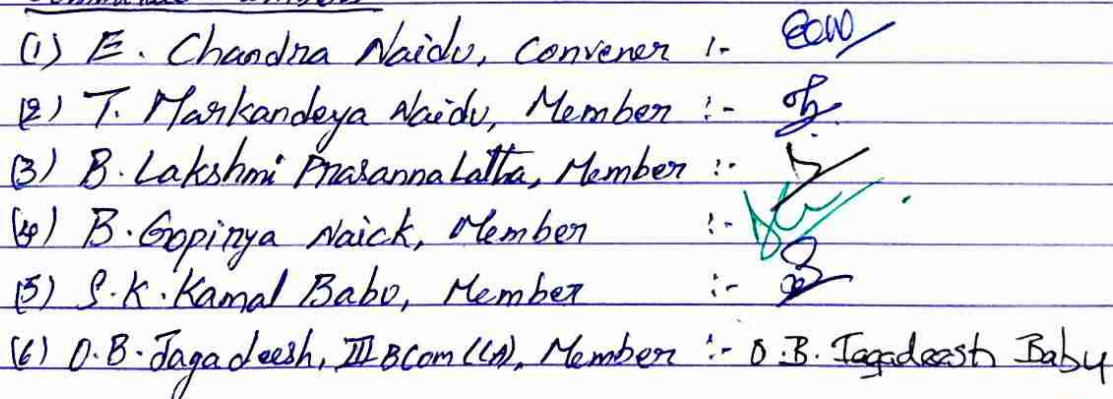 (1) E. Chandra Naidu, Convener :-
(2) T. Markandeya Naidu, Member :-
(3) B. Lakshmi PrasannaLatha, Member :-
(4) B. Gopinya Naick, Member :-
(5) S.K. Kamal Babu, Member :-
(6) O.B. Jagadeesh, III BCom (CA), Member :- O.B. Jagadeesh Babu